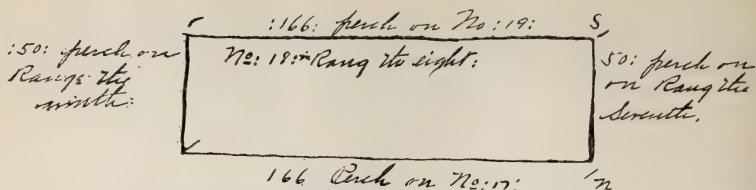 :166: perch on No: 19: S,
:50: perch on
Range the
ninth:
No: 18: in Rang the eight:
50: perch on
on Rang the
Seventh.
166 Perch on No: 17: n